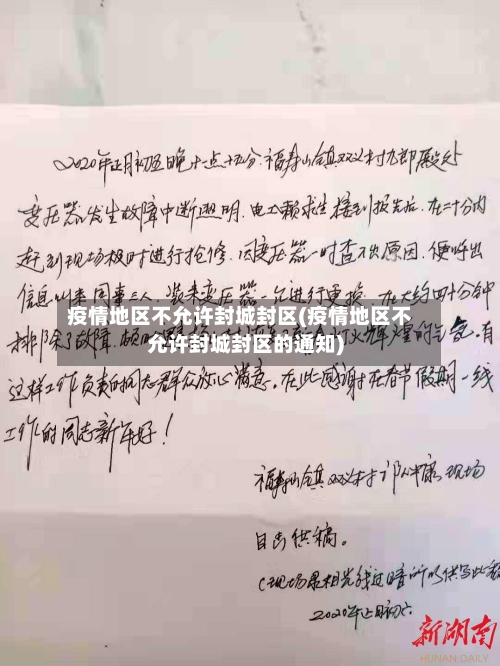 2020年正月初五晚十一点十五分.福寿山镇双义村九郎殿处
变压器发生故障中断照明.电工赖求生接到报告后.在二十分内
赶到现场极时进行抢修.因变压器一时查不出原因.便呼出
信息叫来同事三人.装来变压器一台进行更换.在大约四十分钟
疫情地区不允许封城封区(疫情地区不
允许封城封区的通知)
排除了故障.
辉煌的
有
这样工作负责的同志群众放心满意.在此感谢在春节假期一线
工作的同志新年好!
福寿山镇双义村
现场
目击供稿。
(现场
2020年正月初六
新湖南
HUNAN DAILY